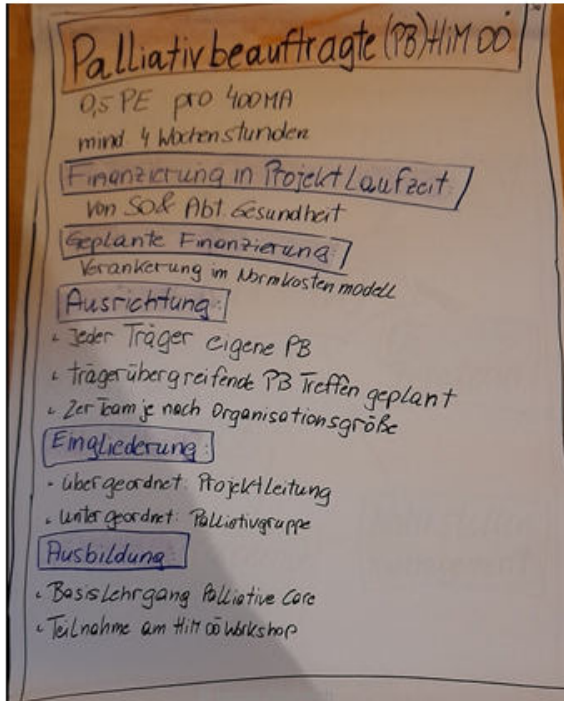 Palliativbeauftragte (PB) HiM OÖ
0,5 PE pro 400 MA
mind 4 Wochenstunden
Finanzierung in Projektlaufzeit:
von SO & Abt. Gesundheit
Geplante Finanzierung:
Verankerung im Normkostenmodell
Ausrichtung:
• Jeder Träger eigene PB
• trägerübergreifende PB Treffen geplant
• 2er Team je nach Organisationsgröße
Eingliederung:
• übergeordnet: Projektleitung
• untergeordnet: Palliativgruppe
Ausbildung:
• Basislehrgang Palliative Care
• Teilnahme am HiM OÖ Workshop